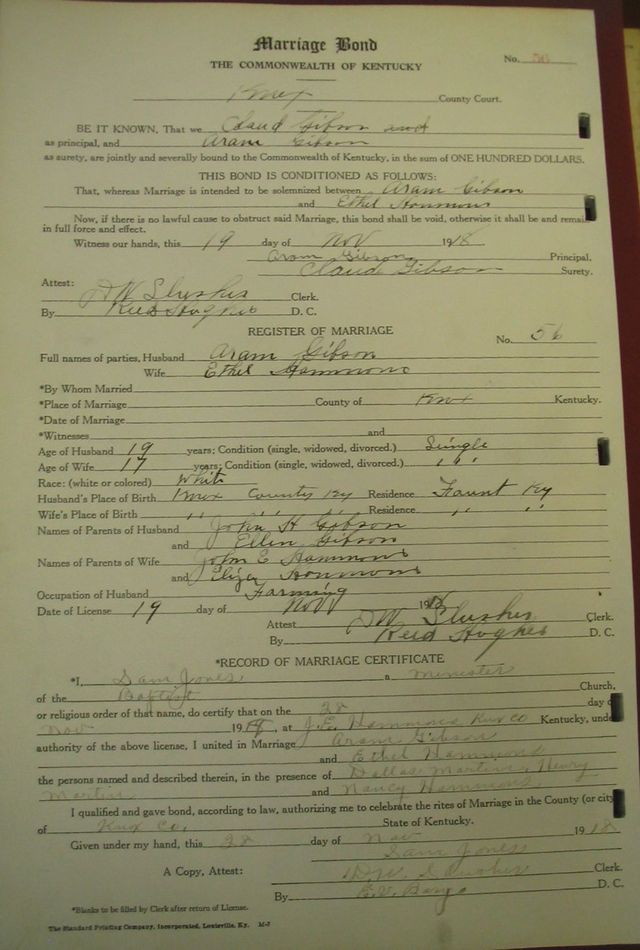 Marriage Bond
THE COMMONWEALTH OF KENTUCKY
No. 56
Knox County Court.
BE IT KNOWN, That we Claud Gibson and
as principal, and Aram Gibson
as surety, are jointly and severally bound to the Commonwealth of Kentucky, in the sum of ONE HUNDRED DOLLARS.
THIS BOND IS CONDITIONED AS FOLLOWS:
That, whereas Marriage is intended to be solemnized between Aram Gibson
and Ethel Hammons
Now, if there is no lawful cause to obstruct said Marriage, this bond shall be void, otherwise it shall be and remain
in full force and effect.
Witness our hands, this 19 day of Nov 1918
Aram Gibson Principal.
Claud Gibson Surety.
Attest:
D W Slusher Clerk.
By Reed Hughes D. C.
REGISTER OF MARRIAGE
No. 56
Full names of parties, Husband Aram Gibson
Wife Ethel Hammons
*By Whom Married
*Place of Marriage County of Knox Kentucky.
*Date of Marriage
*Witnesses and
Age of Husband 19 years; Condition (single, widowed, divorced.) Single
Age of Wife 17 years; Condition (single, widowed, divorced.) " "
Race: (white or colored) White
Husband's Place of Birth Knox County Ky Residence Ky
Wife's Place of Birth " " " Residence " "
Names of Parents of Husband John H Gibson
and Ellen Gibson
Names of Parents of Wife John E Hammons
and Hammons
Occupation of Husband Farming
Date of License 19 day of Nov 1918
Attest D W Slusher Clerk.
By Reed Hughes D. C.
*RECORD OF MARRIAGE CERTIFICATE
*I, Sam Jones a minister
of the Baptist Church,
or religious order of that name, do certify that on the 28 day of
Nov 1918, at J. E. Hammons Knox Co Kentucky, under
authority of the above license, I united in Marriage Aram Gibson
and Ethel Hammons
the persons named and described therein, in the presence of Dallas Martin, Henry
Martin and Nancy Hammons
I qualified and gave bond, according to law, authorizing me to celebrate the rites of Marriage in the County (or city)
of Knox Co. State of Kentucky.
Given under my hand, this 28 day of Nov 1918
Sam Jones
A Copy, Attest: D. W. Slusher Clerk.
By D. C.
*Blanks to be filled by Clerk after return of License.
The Standard Printing Company, Incorporated, Louisville, Ky. M-2